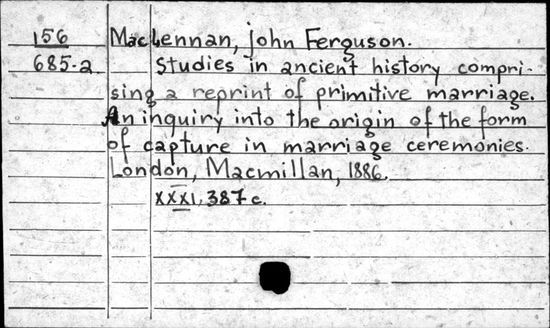 156 MacLennan, John Ferguson.
685-a. Studies in ancient history compri-
sing a reprint of primitive marriage.
An inquiry into the origin of the form
of capture in marriage ceremonies.
London, Macmillan, 1886.
XXXI, 387 c.